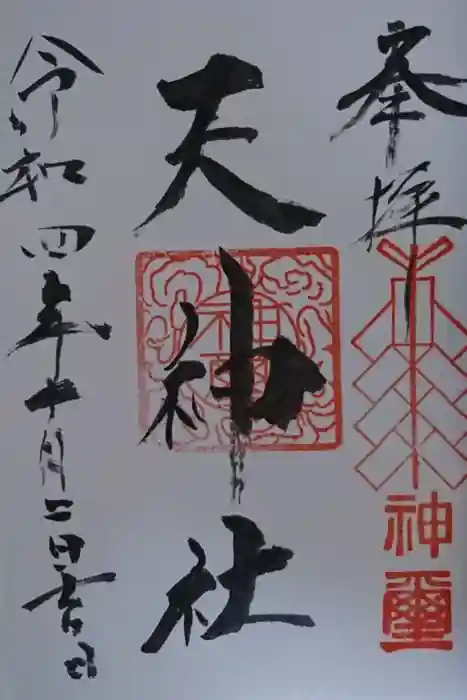 奉拝
神璽
天神社
令和四年十月二日吉日